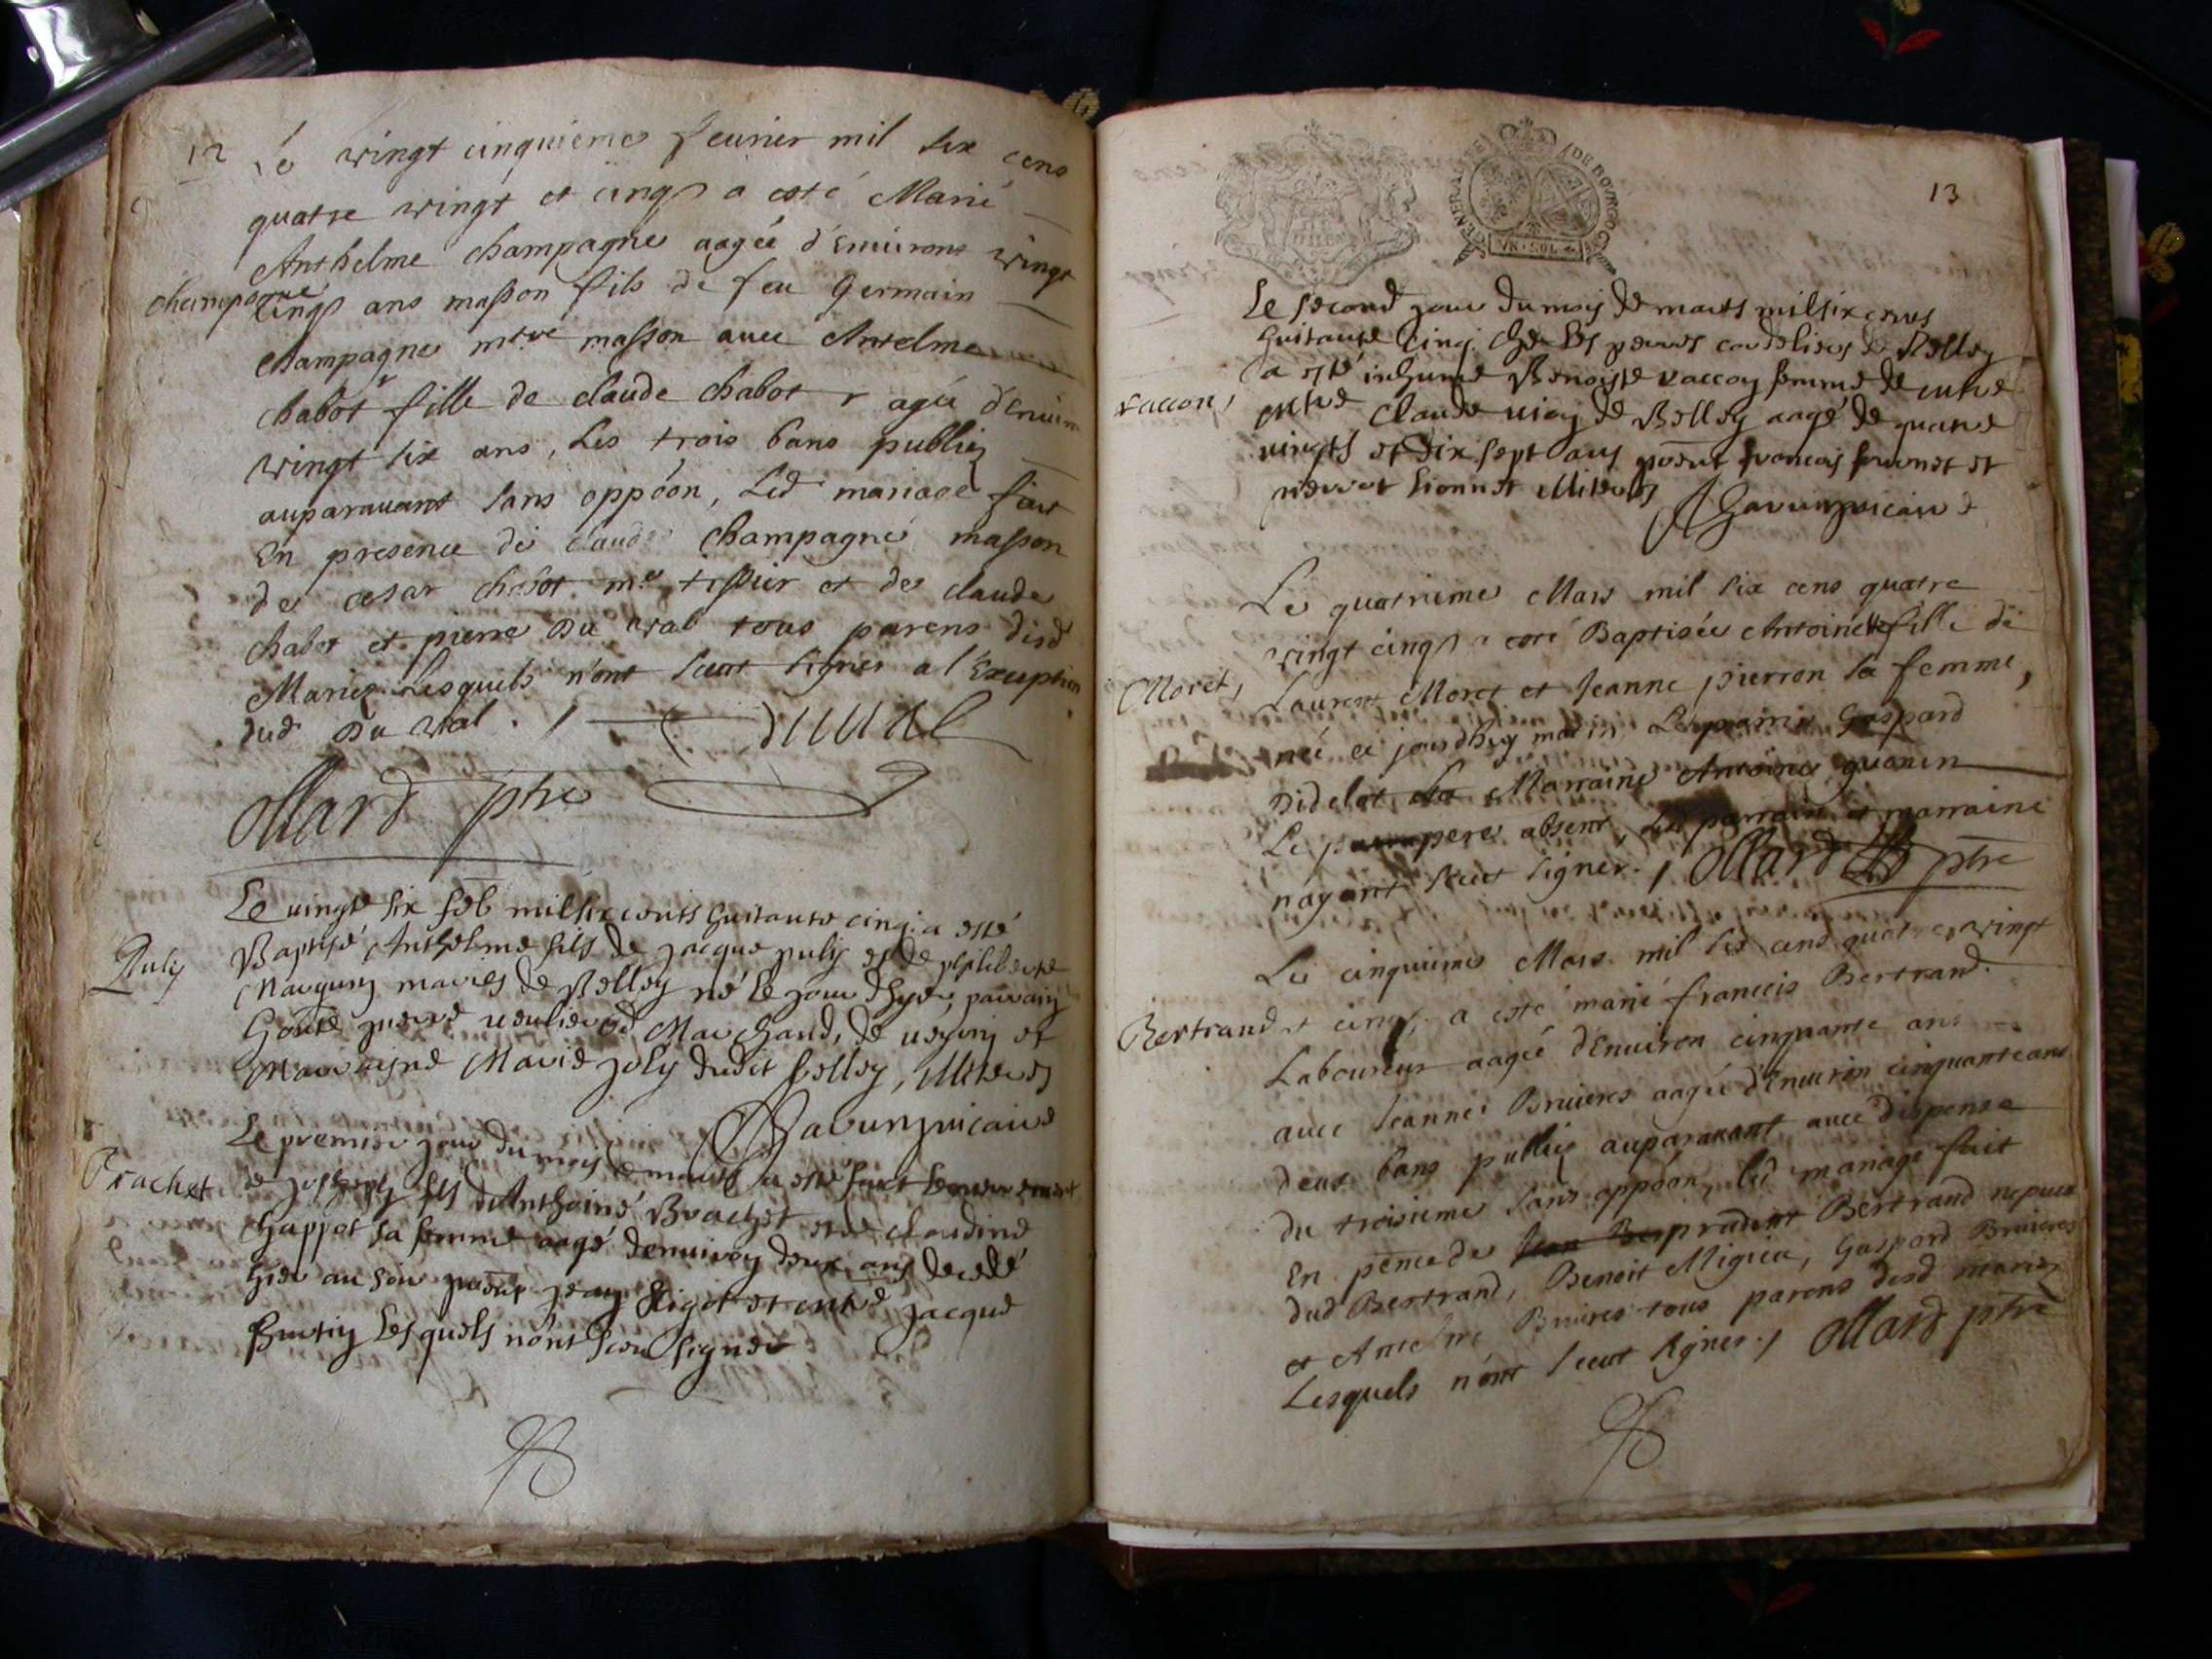 12
Le vingt cinquieme feurier mil six cens
quatre vingt et cinq a esté Marié
Anthelme champagne aagée d'Enuirons vingt
champagne
cinq ans masson fils de feu Germain
champagne mtre masson auec Antelme
chabot fille de claude chabot agée d'Enuiron
vingt six ans, Les trois bans publiez
auparauant sans oppoon, Led mariage fait
En presence de claude champagne masson
de cesar chabot me tissier et de claude
chabot et pierre Du val tous parens desd
Mariez Lesquels n'ont sceut signer a l'Exception
dud Du Val. / duual
ollard ptre
Le vingt six feb mil six cents huitante cinq a esté
Puly
Baptisé Anthelme fils de jacque puly et de philiberte
mariés de Belley né le jour d'hyer, parrain
Marchand, de et
Marrayne Marie joly dudit belley,
Le premier jour du mois de mars a esté fait
Brachet
de joseph fils d'Anthoine Brachet et de claudine
sa femme aagé denuiron deux ans decedé
hier au soir jean Rigot et jacque
Lesquels n'ont sceu signer
13
GENERALITE DE BOURGOGNE
VN SOL
Le second jour du mois de mars mil six cens
huitante cinq. Chez Les peres cordeliers de Belley
Vaccon,
a esté inhumé Benoiste vaccon femme de
Claude de Belley aagé de quatre
vingts et dix sept ans francois et
Le quatrieme Mars mil six cens quatre
vingt cinq a esté Baptisée Antoinette fille de
Moret,
Laurent Moret et Jeanne pierron sa femme,
née ce jourdhuy matin Le parrin Gaspard
Didelot La Marraine Antoine
Le pere absent, Les parrain et marraine
n'ayant sceut signer. / ollard ptre
Le cinquieme Mars mil six cens quatre vingt
Bertrand
et cinq, a esté marié francois Bertrand
Laboureur aagée d'Enuiron cinquante ans
auec Jeanne Bruieres aagée d'Enuiron cinquante ans
deus bans publiez auparauant auec dispense
du troisieme sans oppoon, led mariage fait
En pence de prudent Bertrand nepueu
dud Bertrand, Benoit Migieu, Gaspard Bruieres
et Antelme Bruieres tous parens desd mariez
Lesquels n'ont sceut signer. / ollard ptre